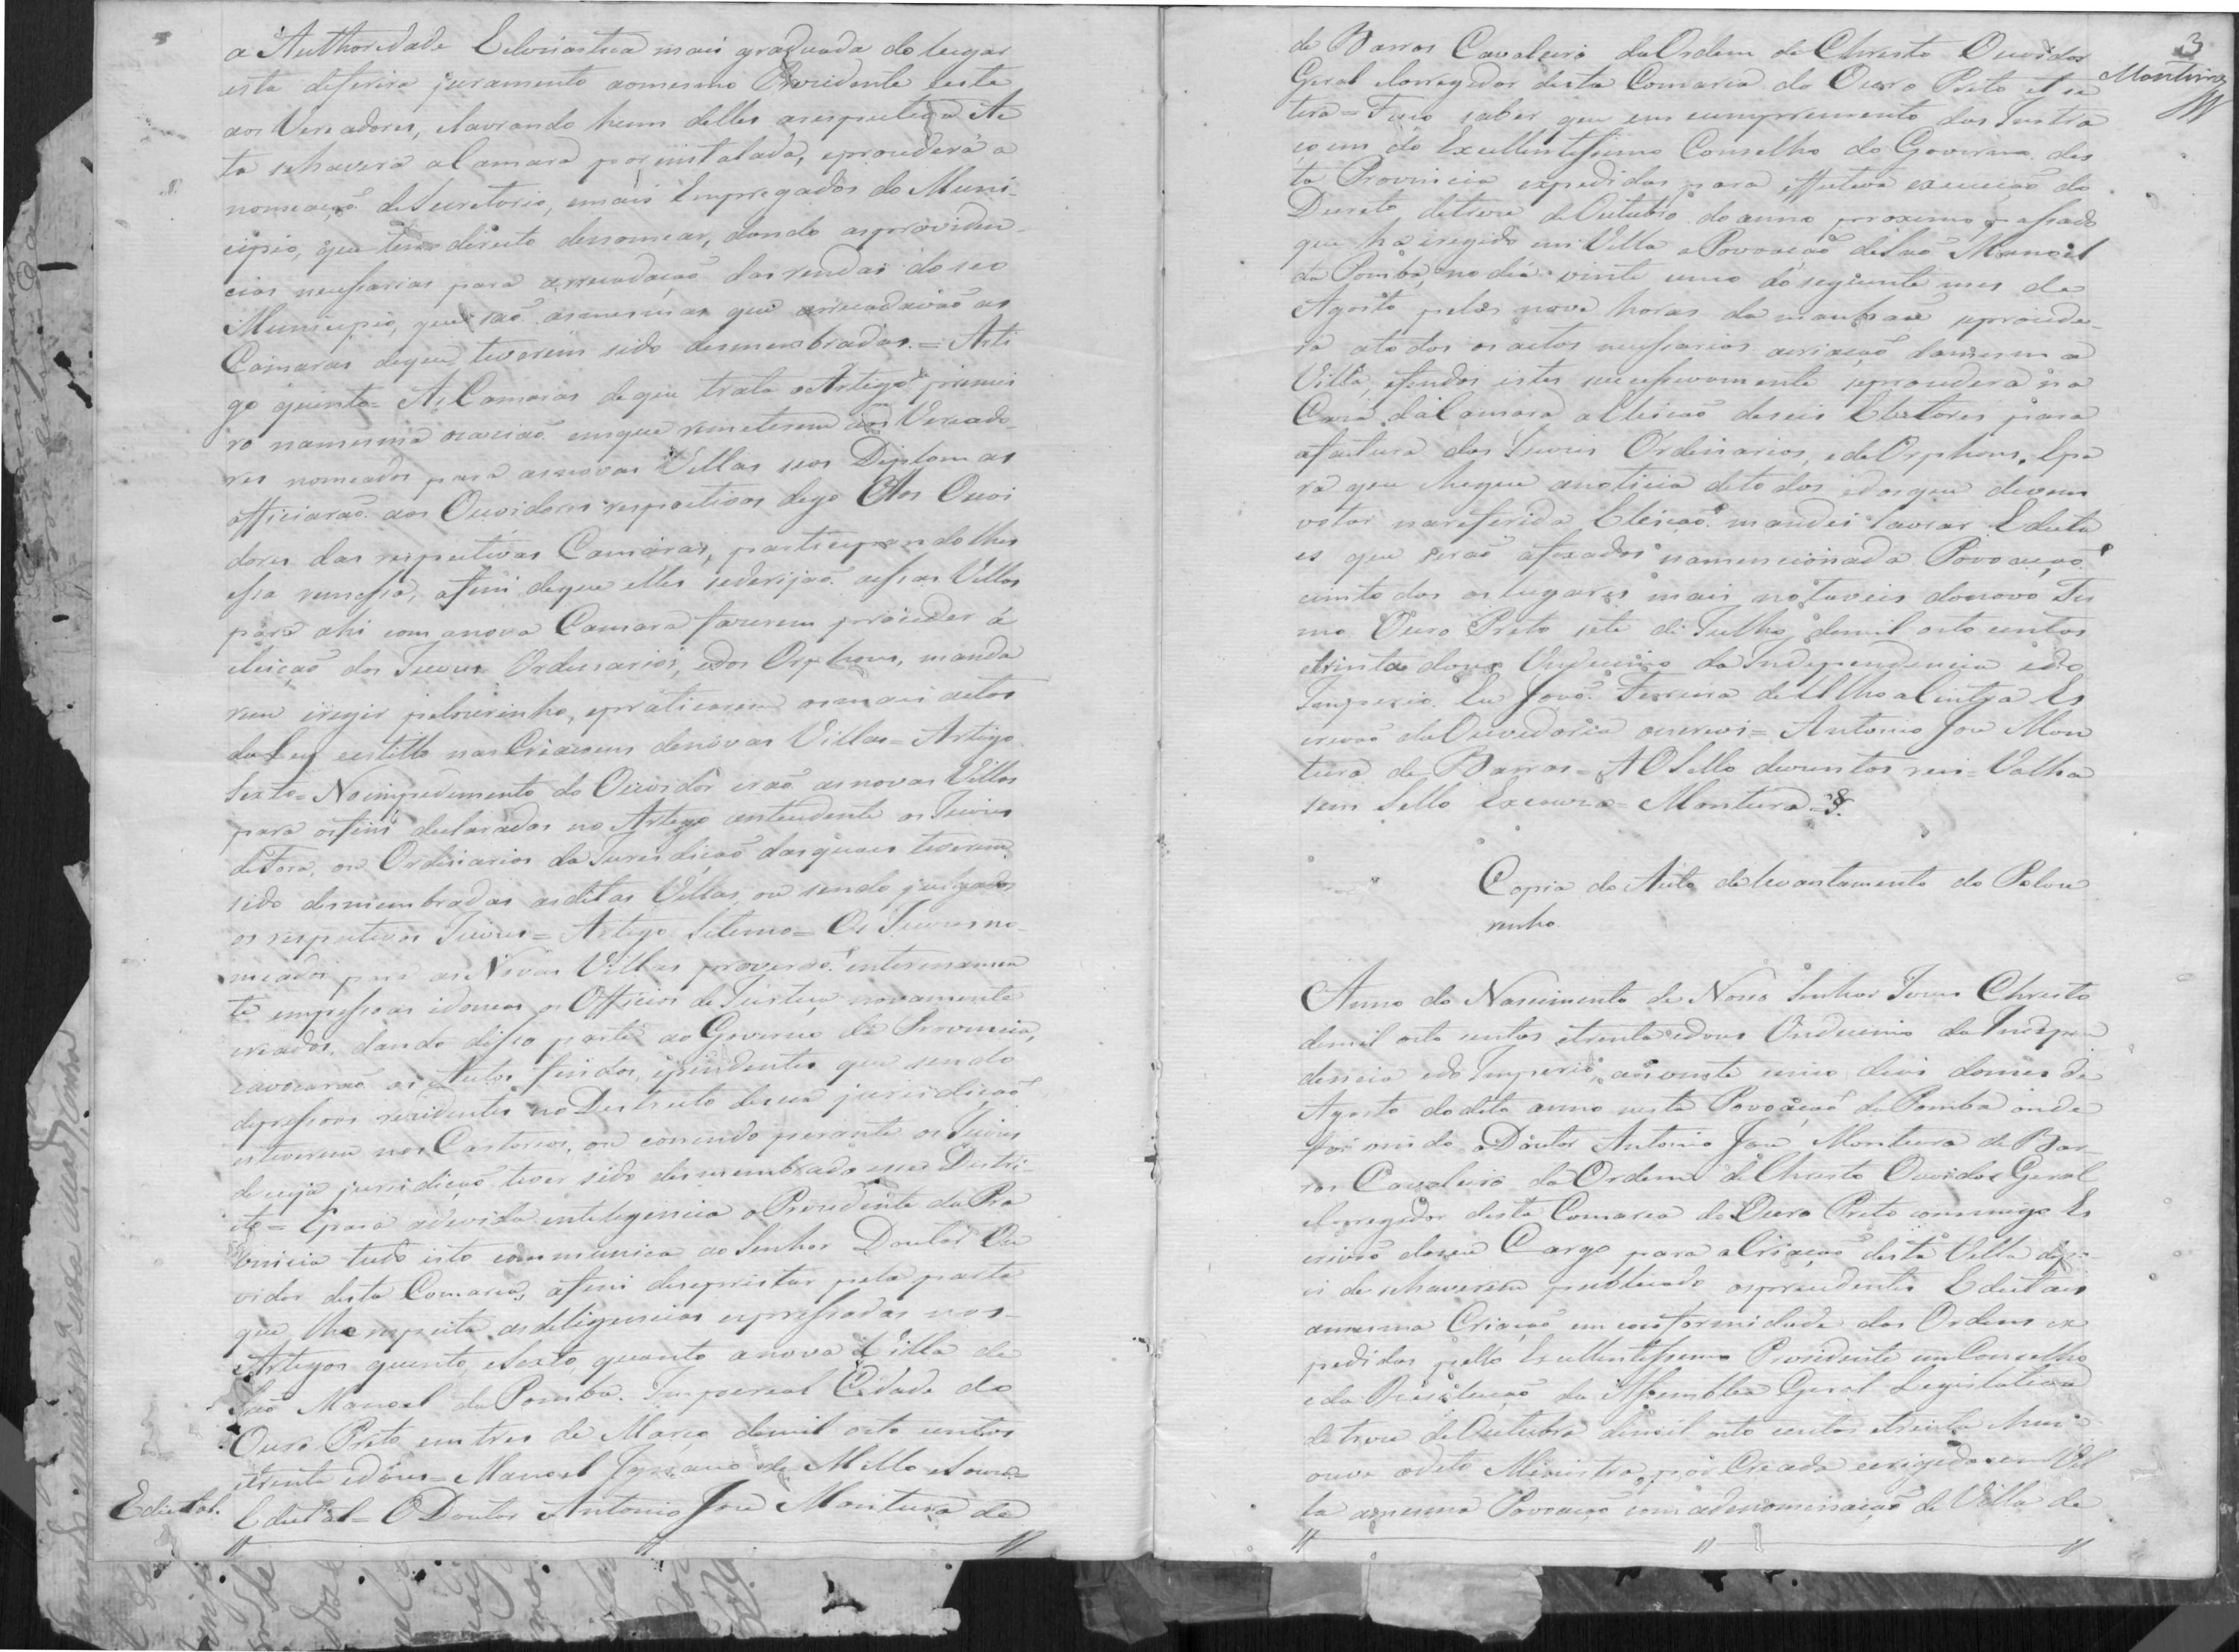 a Authoridade Eclesiastica mais graduada do lugar
esta deferira juramento aomesmo Prezidente e este
aos Vereadores, e lavrando hum delles a respectiva Ac
ta sehavera a Camara por installada, e procederá a
nomeação de Secretario, emais Empregados do Muni-
cipio, que tem direito denomear, dando asproviden-
cias necessarias para arrecadação das rendas do seo
Municipio, que são asmesmas que arrecadavão as
Camaras deque tiverem sido desmembradas. = Arti
go quinto = As Camaras deque trata o Artigo primei
ro namesma ocazião emque remeterem aos Vereado-
res nomeados para asnovas Villas seos Diplomas
officiarão aos Ouvidores respectivos digo Aos Ouvi
dores das respectivas Camaras, participandolhes
essa remessa, afim deque elles sederijão aessas Villas
para ahi com anova Camara fazerem proceder á
eleição dos Juizes Ordinarios, edos Orphons, manda
rem eregir pelourinho, epraticarem osmais actos
da Ley eestillo nas Creaçoens denovas Villas = Artigo
Sexto = Noimpedimento do Ouvidor irão asnovas Villas
para osfins declarados no Artigo antecedente os Juizes
deFora, ou Ordinarios da Jurisdição dasquaes tiverem
sido desmembradas asditas Villas, ou sendo julgados
os respectivos Juizes = Artigo Setimo = Os Juizes no-
meados para as Novas Villas proverão interinamen
te empessoas idoneas os Officios de Justiça novamente
creados, dando disso parte ao Governo da Provincia,
eavocarão os Autos findos, ependentes que sendo
depessoas rezidentes no Destricto desua jurisdição
estiverem nos Cartorios, ou correndo perante os Juizes
de cuja jurisdição tiver sido desmembrado esse Destri-
cto = Epara adevida inteligencia o Prezidente da Pro
vincia tudo isto communica ao Senhor Doutor Ou
vidor desta Comarca, afim deseprestar pela parte
que lhe respeita asdeligencias expressadas nos-
Artigos quinto, eSexto, quanto anova Villa de
São Manoel da Pomba. Imperial Cidade do
Ouro Preto emtres de Março demil oito centos
etrinta edous = Manoel Ignacio de Mello eSouza =
Edictal.
Edictal = O Doutor Antonio Jose Monteiro de
3
Monteiro
de Barros Cavaleiro da Ordem de Christo Ouvidor
Geral eCorregedor desta Comarca do Ouro Preto et ce
tera = Faço saber que em cumprimento das Instru
çoens do Excellentissimo Conselho do Governo des
ta Provincia expedidas para effectiva execução do
Decreto detreze de Outubro do anno proximo passado
que ha eregido em Villa a Povoação deSão Manoel
da Pomba, no dia vinte cinco do seguinte mes de
Agosto pelas nove horas da manhaã seprocede-
rá atodos os actos necessarios acriação damesma
Villa, efindos estes sucessivamente seprocederá na
Caza da Camara aEleição deseis Eleitores para
afactura dos Juizes Ordinarios, e de Orphons. Epa
ra que chegue anoticia detodos edosque devem
votar nareferida Eleição mandei lavrar Edicta
es que serão afixados namencionada Povoação
eemtodos os lugares mais notaveis donovo Ter
mo Ouro Preto sete de Julho demil oito centos
etrinta e dous Undecimo da Independencia edo
Imperio. Eu João Ferreira de Ulhoa Cintra Es
crivão da Ouvedoria oescrevi = Antonio Jose Mon
teiro de Barros = AO Sello duzentos reis = Valha
sem Sello Excauza = Monteiro =
Copia do Auto de levantamento do Pelou
rinho
Anno do Nascimento de Nosso Senhor Jezus Christo
demil oito centos etrinta edous Undecimo da Indepen
dencia edo Imperio, aos vinte cinco dias domes de
Agosto dodito anno nesta Povoação da Pomba onde
foi vindo o Doutor Antonio Jose Monteiro de Bar-
ros Cavaleiro da Ordem de Christo Ouvidor Geral
eCorregedor desta Comarca do Ouro Preto commigo Es
crivão deseu Cargo para aCriação desta Villa depo-
is desehaverem publicado osprecedentes Edictaes
amesma Criação em conformidade das Ordens ex
pedidas pello Excellentissimo Prezidente em Conselho
eda Rezolução da Assemblea Geral Legislativa
detreze deOutubro demil oito centos etrinta hum
ouve odito Ministro por Creada eerigida em Vil
la amesma Povoação com adenominação de Villa de